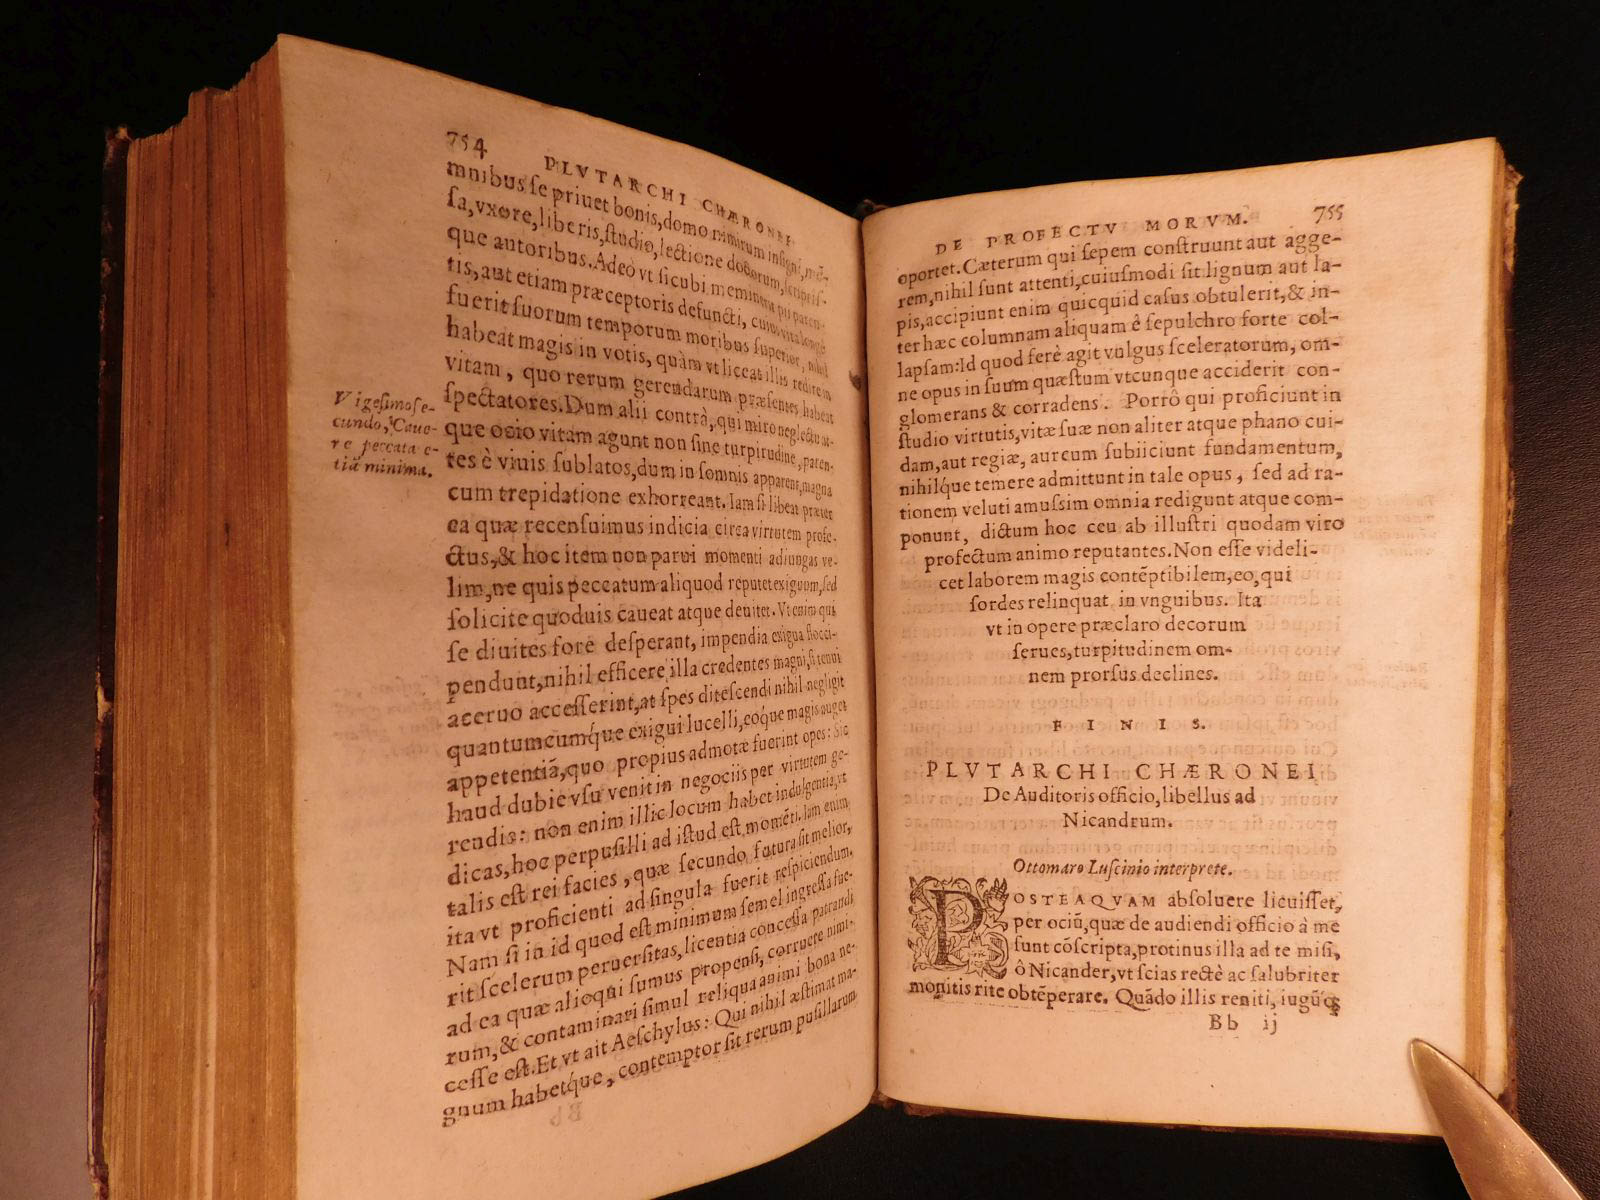 754
PLVTARCHI CHÆRONEI
mnibus ſe priuet bonis, domo nimirum inſigni, mẽ-
ſa, vxore, liberis, ſtudio, lectione doctorum, ſcriptiſ-
que autoribus. Adeò vt ſicubi meminerit pij paren-
tis, aut etiam præceptoris defuncti, cuius vita longè
fuerit ſuorum temporum moribus ſuperior, nihil
habeat magis in votis, quàm vt liceat illis redire in
vitam, quo rerum gerendarum præſentes habeat
ſpectatores. Dum alii contrà, qui miro neglectu at-
que ocio vitam agunt non ſine turpitudine, paren-
tes è viuis ſublatos, dum in ſomnis apparent, magna
cum trepidatione exhorreant. Iam ſi libeat præter
ea quæ recenſuimus indicia circa virtutem profe-
ctus, & hoc item non parui momenti adiungas ve-
lim, ne quis peccatum aliquod reputet exiguum, ſed
ſolicite quoduis caueat atque deuitet. Vt enim qui
ſe diuites fore deſperant, impendia exigua flocci-
pendunt, nihil efficere illa credentes magni, ſi tenui
aceruo acceſſerint, at ſpes diteſcendi nihil negligit
quantumcumq́ue exigui lucelli, eoq́ue magis auget
appetentiã, quo propius admotæ fuerint opes: Sic
haud dubie vſu venit in negociis per virtutem ge-
rendis: non enim illic locum habet indulgentia, vt
dicas, hoc perpuſilli ad iſtud eſt momẽti. Iam enim
talis eſt rei facies, quæ ſecundo futura ſit melior,
ita vt proficienti ad ſingula fuerit reſpiciendum.
Nam ſi in id quod eſt minimum ſemel ingreſſa fue-
rit ſcelerum peruerſitas, licentia conceſſa patrandi
ad ea quæ alioqui ſumus propenſi, corruere nimi-
rum, & contaminari ſimul reliqua animi bona ne-
ceſſe eſt. Et vt ait Aeſchylus: Qui nihil æſtimat ma-
gnum habetq́ue, contemptor ſit rerum puſillarum
Vigeſimoſe-
cundo, Caue-
re peccata e-
tiã minima.
DE PROFECTV MORVM.
755
oportet. Cæterum qui ſepem conſtruunt aut agge-
rem, nihil ſunt attenti, cuiuſmodi ſit lignum aut la-
pis, accipiunt enim quicquid caſus obtulerit, & in-
ter hæc columnam aliquam ê ſepulchro forte col-
lapſam: Id quod ferè agit vulgus ſceleratorum, om-
ne opus in ſuum quæſtum vtcunque acciderit con-
glomerans & corradens. Porrô qui proficiunt in
ſtudio virtutis, vitæ ſuæ non aliter atque phano cui-
dam, aut regiæ, aureum ſubiiciunt fundamentum,
nihilq́ue temere admittunt in tale opus, ſed ad ra-
tionem veluti amuſſim omnia redigunt atque com-
ponunt, dictum hoc ceu ab illuſtri quodam viro
profectum animo reputantes. Non eſſe videli-
cet laborem magis contẽptibilem, eo, qui
ſordes relinquat in vnguibus. Ita
vt in opere præclaro decorum
ſerues, turpitudinem om-
nem prorſus declines.
F I N I S.
PLVTARCHI CHÆRONEI
De Auditoris officio, libellus ad
Nicandrum.
Ottomaro Luſcinio interprete.
POSTEAQVAM abſoluere licuiſſet,
per ociũ, quæ de audiendi officio à me
ſunt cõſcripta, protinus illa ad te miſi,
ô Nicander, vt ſcias rectè ac ſalubriter
monitis rite obtẽperare. Quãdo illis reniti, iugũq;
Bb ij